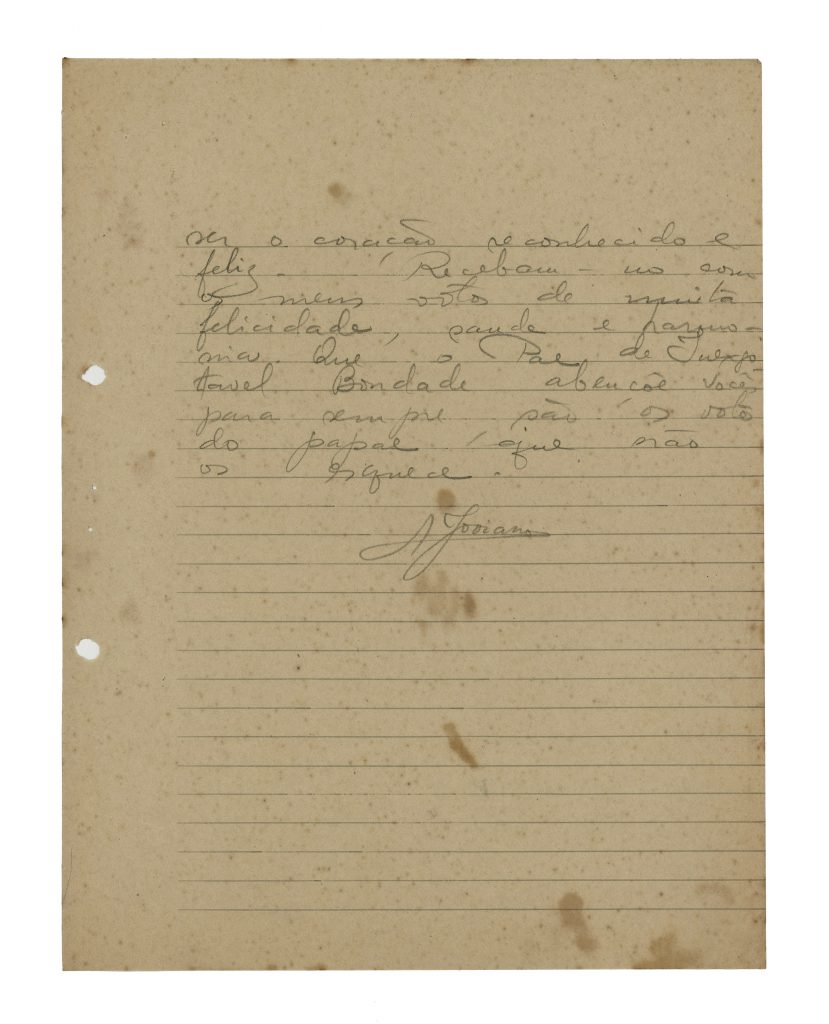 ser o coração reconhecido e
feliz. Recebam-no com
os meus vótos de muita
felicidade, saude e harmo-
nia. Que o Pae de Inexgo
tavel Bondade abençõe vocês
para sempre são os votos
do papae que não
os esquece.
A Joviano